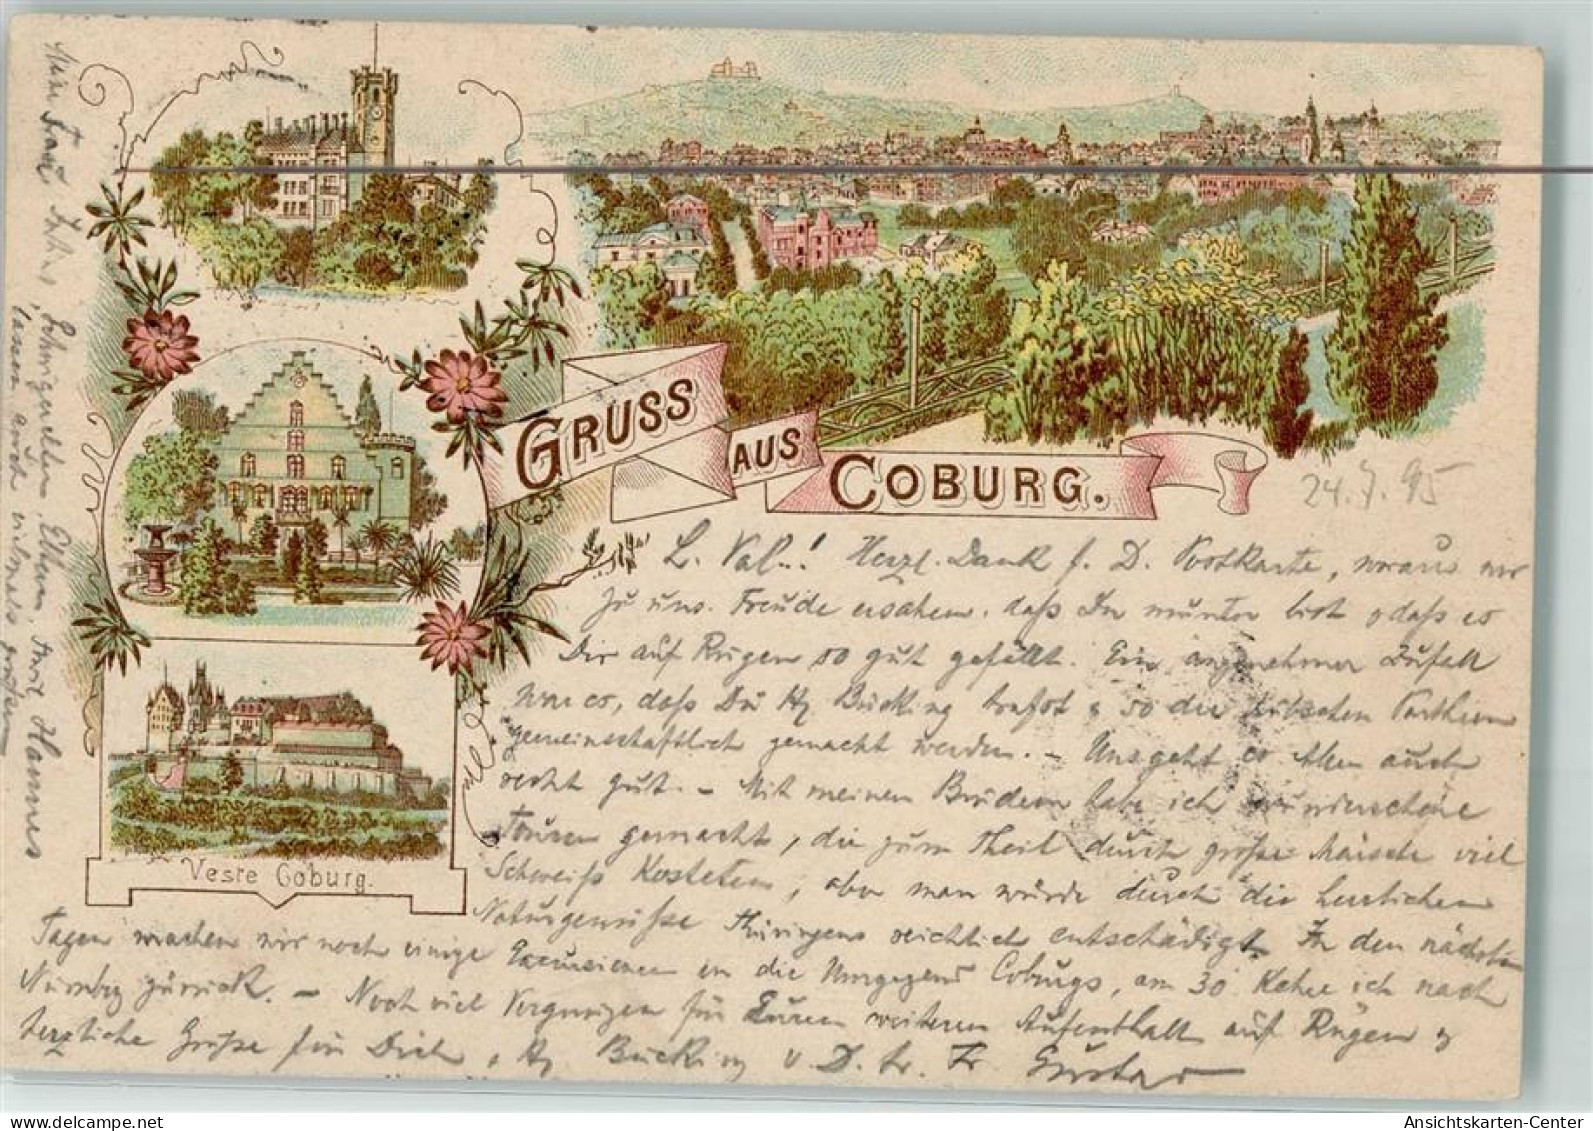 GRUSS
AUS
COBURG.
24.7.95
L. Val..! Herzl. Dank f. D. Postkarte, woraus wir
zu uns. Freude ersahen, daß Du munter bist & daß es
Dir auf Rügen so gut gefällt. Ein angenehmer Zufall
war es, daß Du Hg Bücking trafst & so die hübschen Parthien
gemeinschaftlich gemacht werden. – Uns geht es Allen auch
recht gut. – Mit meinem Brüdern habe ich wunderschöne
Touren gemacht, die zum Theil durch große Märsche viel
Schweiß kosteten, aber man würde durch die herrlichen
Naturgenüße Thüringens reichlich entschädigt. In den nächsten
Tagen machen wir noch einige Excursionen in die Umgegend Coburgs, am 30. kehre ich nach
Nürnbg zurück. – Noch viel Vergnügen für Euren weiteren Aufenthalt auf Rügen &
herzliche Grüße für Dich & Hg Bücking v. D. tr. Fr Gustav
Meine Frau, Schwiegereltern, Hannes
lassen auch vielmals grüßen
Veste Coburg.
Ansichtskarten-Center
www.delcampe.net